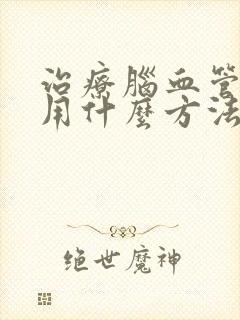 治療腦血管
用什麼方法
绝世魔神